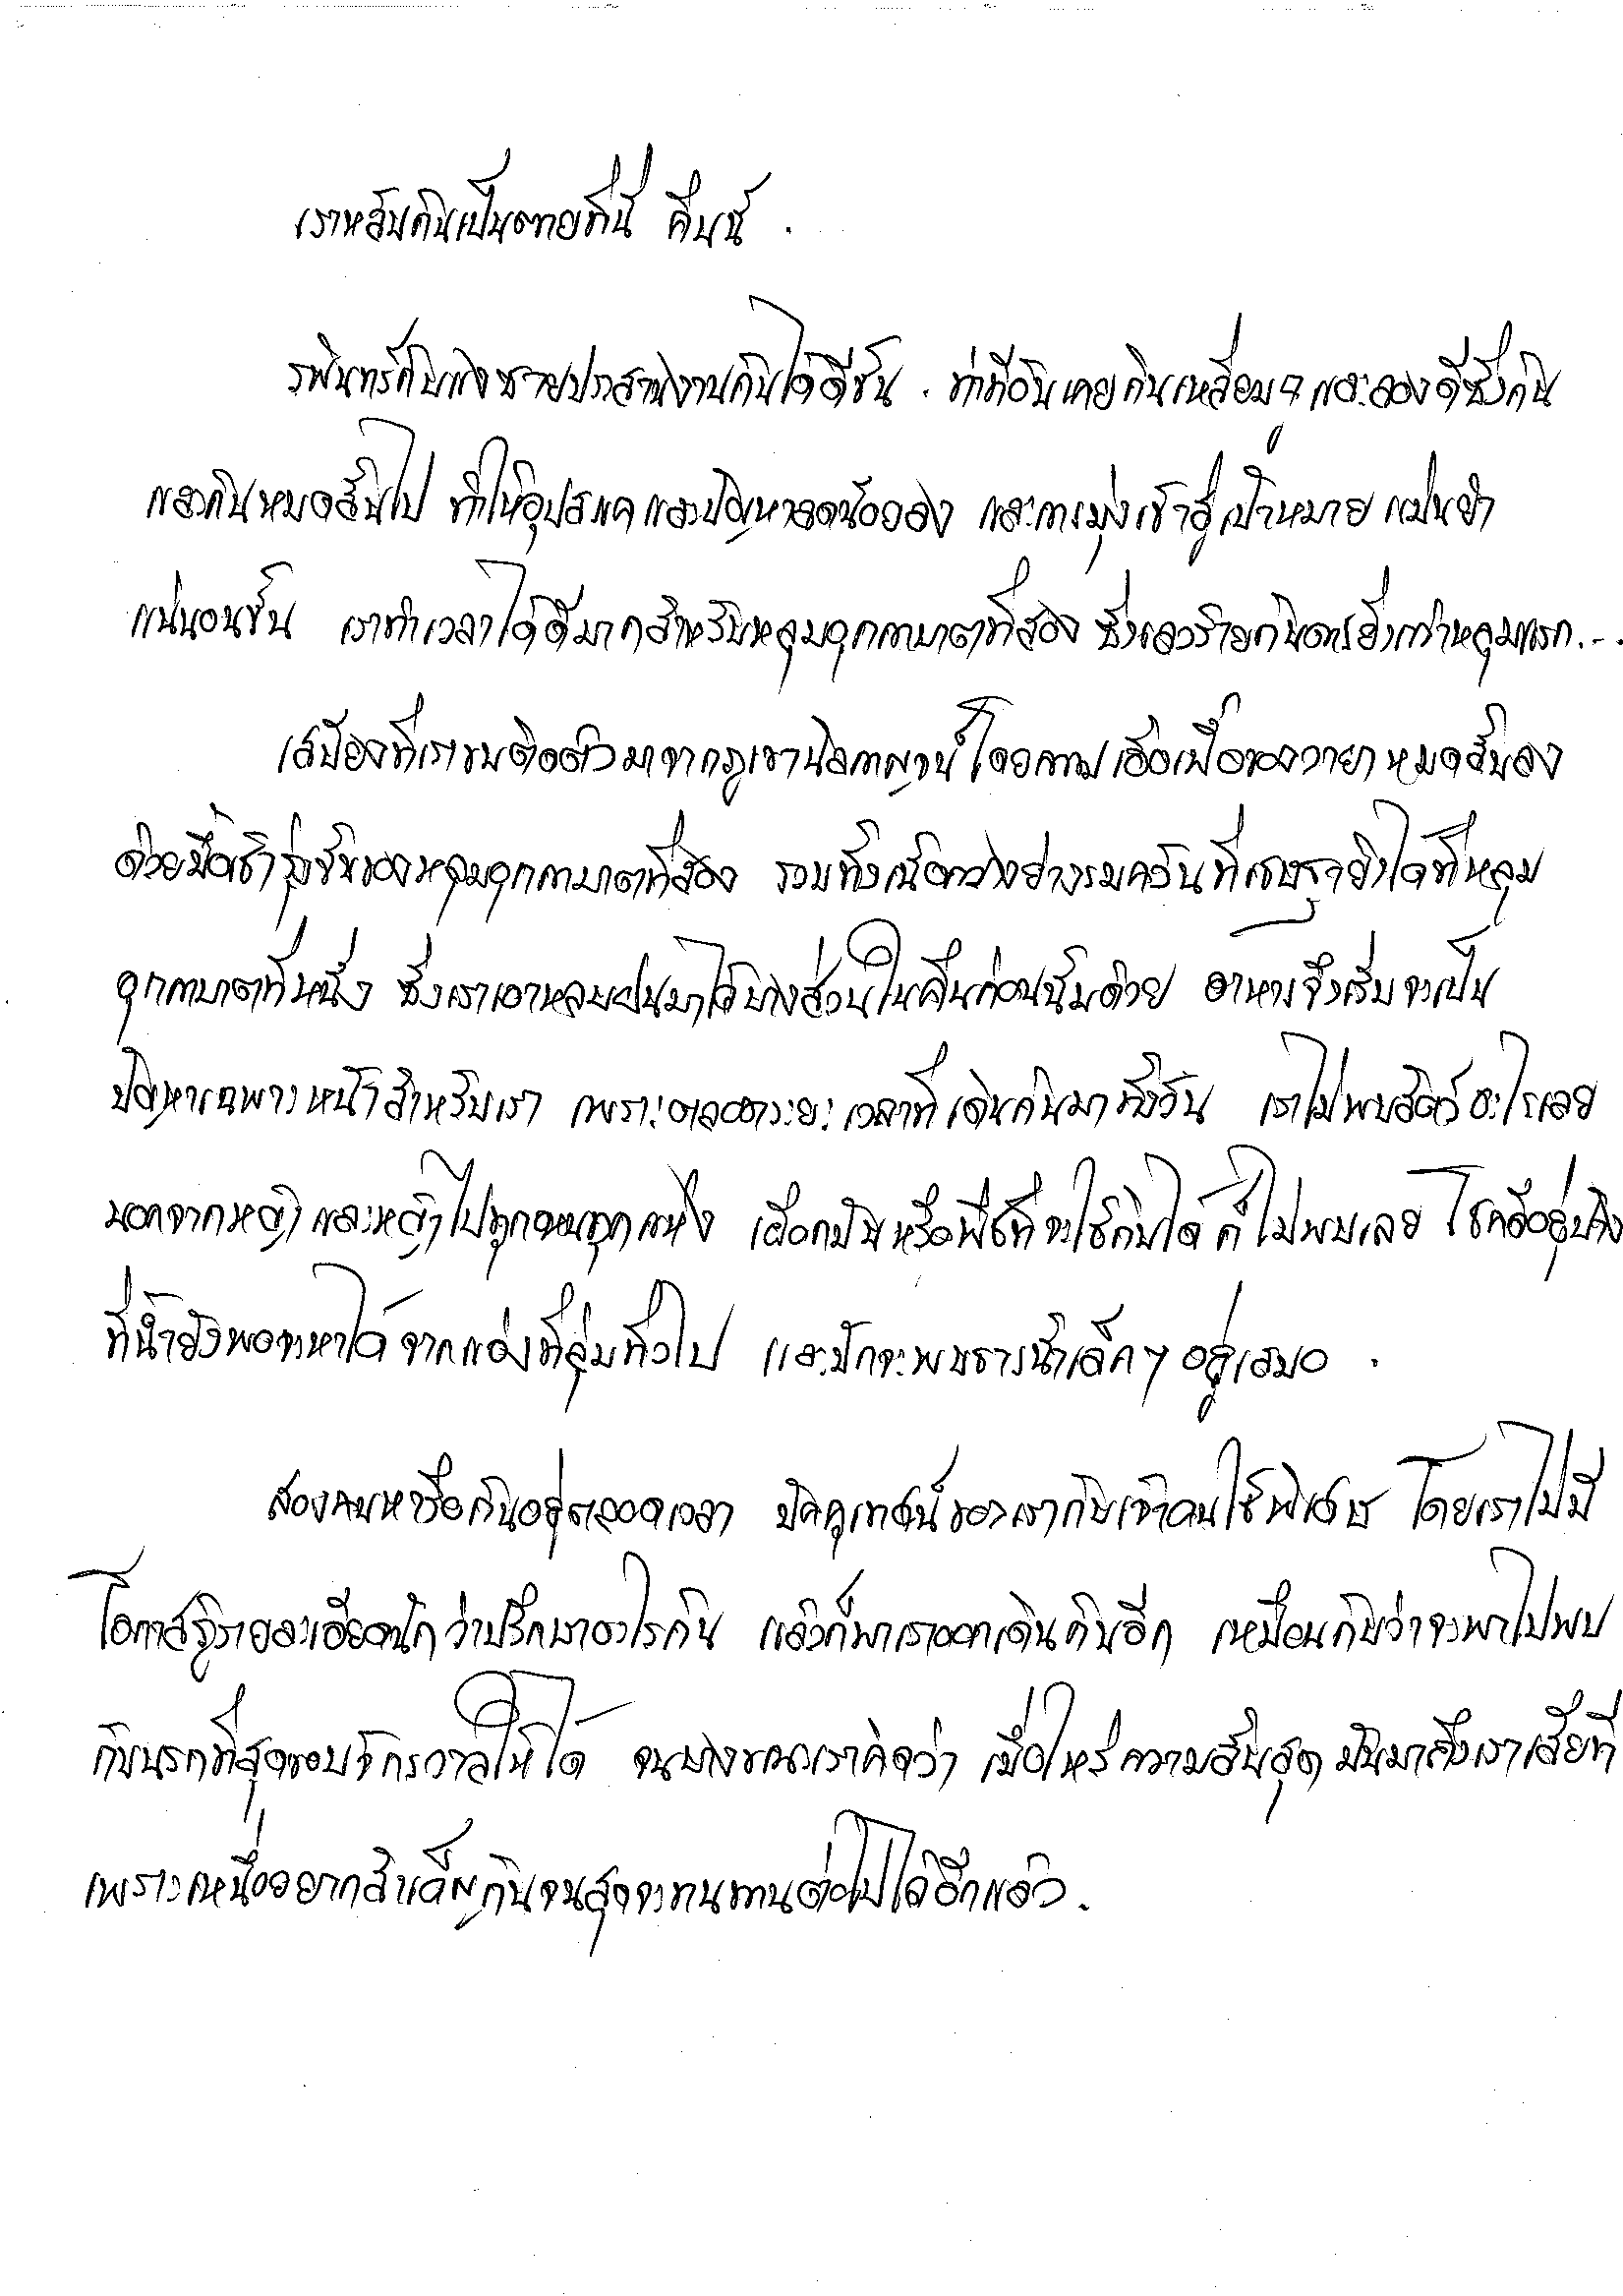 เราหลับกันเป็นตายที่นี่ คืนนี้ .
รพินทร์กับแงซายประสานงานกันได้ดีขึ้น . ท่าทีอันเคยกินเหลี่ยมๆ และลองดีซึ่งกัน
และกันหมดสิ้นไป ทำให้อุปสรรคและปัญหาลดน้อยลง และการมุ่งเข้าสู่เป้าหมายแม่นยำ
แน่นอนขึ้น เราทำเวลาได้ดีมากสำหรับหลุมอุกกาบาตที่สอง ซึ่งเลวร้ายกันดารยิ่งกว่าหลุมแรก...
เสบียงที่เราขนติดตัวมาจากภูเขานิลกาญจน์โดยความเอื้อเฟื้อของวายา หมดสิ้นลง
ด้วยมื้อเช้ารุ่งขึ้นของหลุมอุกกาบาตที่สอง รวมทั้งเนื้อกวางย่างรมควันที่เชษฐายิงได้ที่หลุม
อุกกาบาตที่หนึ่ง ซึ่งเราเอาหลบฝนมาไว้บางส่วนในคืนก่อนนั้นด้วย อาหารจึงเริ่มจะเป็น
ปัญหาเฉพาะหน้าสำหรับเรา เพราะตลอดระยะเวลาที่เดินกันมาทั้งวัน เราไม่พบสัตว์อะไรเลย
นอกจากหญ้าและหญ้าไปทุกหนทุกแห่ง เผือกมันหรือพืชที่จะใช้กินได้ก็ไม่พบเลย โชคดีอยู่บ้าง
ที่น้ำยังพอจะหาได้จากแอ่งที่ลุ่มทั่วไป และมักจะพบธารน้ำเล็กๆ อยู่เสมอ .
สองคนหารือกันอยู่ตลอดเวลา มัคคุเทศน์ของเรากับเจ้าคนใช้พิเศษ โดยเราไม่มี
โอกาสรู้รายละเอียดนักว่าปรึกษาอะไรกัน แล้วก็พาเราออกเดินกันอีก เหมือนกับว่าจะพาไปพบ
กับนรกที่สุดขอบจักรวาลให้ได้ จนบางขณะเราคิดว่า เมื่อไหร่ความสิ้นสุดมันมาถึงเราเสียที
เพราะเหนื่อยยากลำเค็ญกันจนสุดจะทนทานต่อไปได้อีกแล้ว.